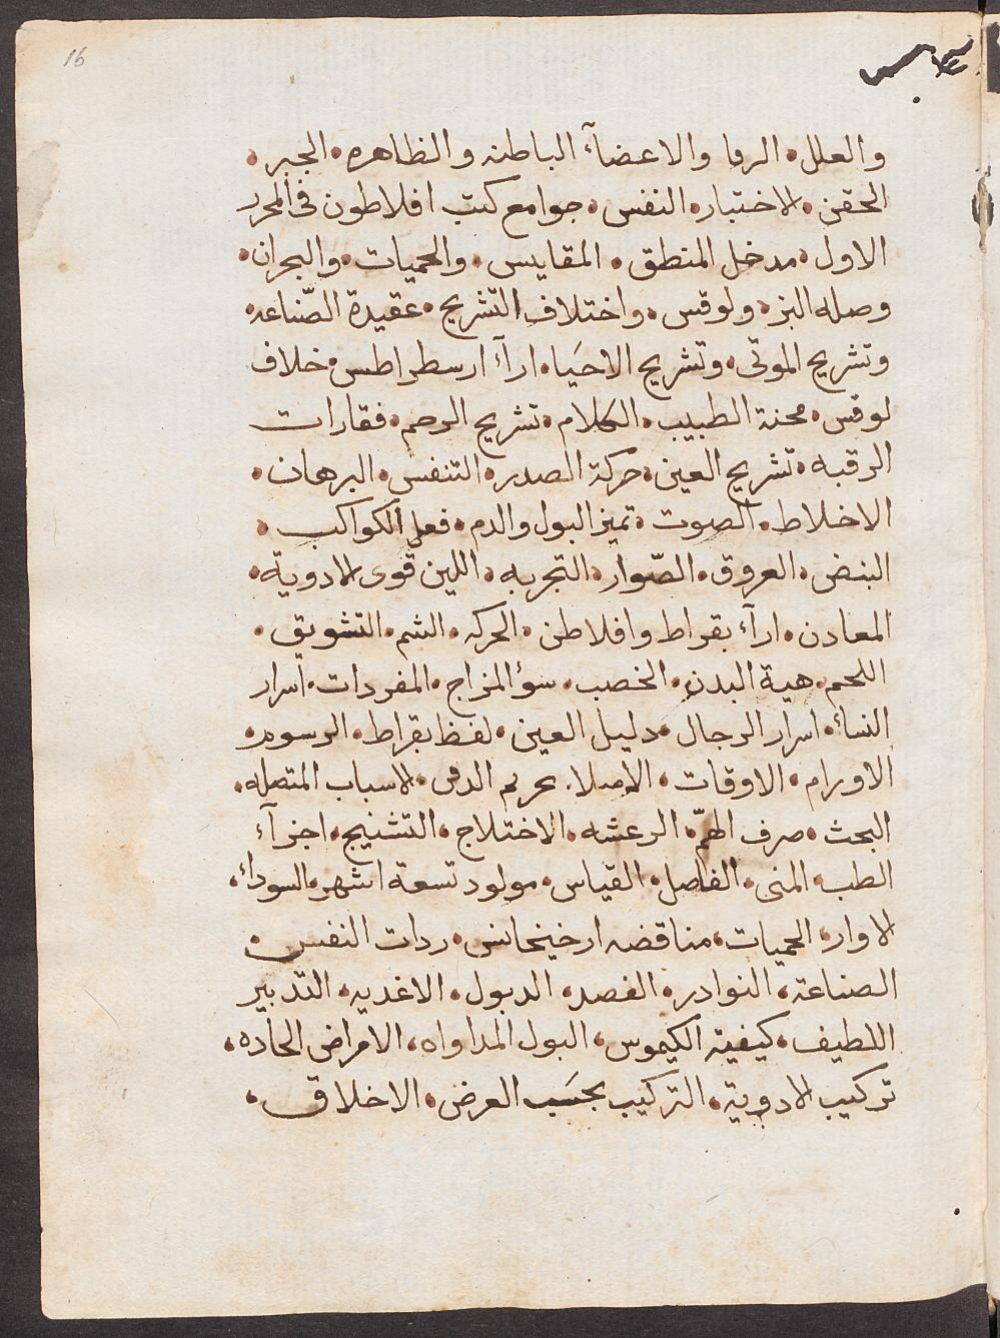 16
والعلل • الرفا والاعضآء الباطنه والظاهره • الجبر •
الحقن • الاختبار • النفس • جوامع كتب افلاطون فى المحرر
الاول • مدخل المنطق • المقاييس • والحميات • والبحران •
وصله البز • ولوقس • واختلاف التشريح • عقيدة الصّناعه •
وتشريح الموتى • وتشريح الاحيَاء • ارآء ارسطراطس • خلاف
لوقس • محنة الطبيب • الكلام • تشريح الرحم • فقارات
الرقبه • تشريح العين • حركة الصدر • التنفس • البرهان •
الاخلاط • الصوت • تميز البول والدم • فعل الكواكب •
النبض • العروق • الصّوار • التجربه • اللين قوى الادوية •
المعادن • ارآء بقراط وافلاطن • الحركه • الشم • التشويق •
اللحم • هية البدن • الخصب • سؤ المزاج • المفردات • اسرار
النسآء • اسرار الرجال • دليل العين • لفظ بقراط • الرسوم •
الاورام • الاوقات • الامتلا • الدم • الاسباب المتصله •
البحث • صرف الهمّ • الرعشه • الاختلاج • التشنيج • اجزآء
الطب • المنى • الفاصل • القياس • مولود تسعة اشهر • السودآء •
الادوار • الحميات • مناقضه ارخيخانس • ردات النفس •
الصناعة • النوادر • الفصد • الدبول • الاغديه • التدبير
اللطيف • كيفية الكيموس • البول المداواه • الامراض الحاده •
تركيب الادوية • التركيب بحسَب العرض • الاخلاق •